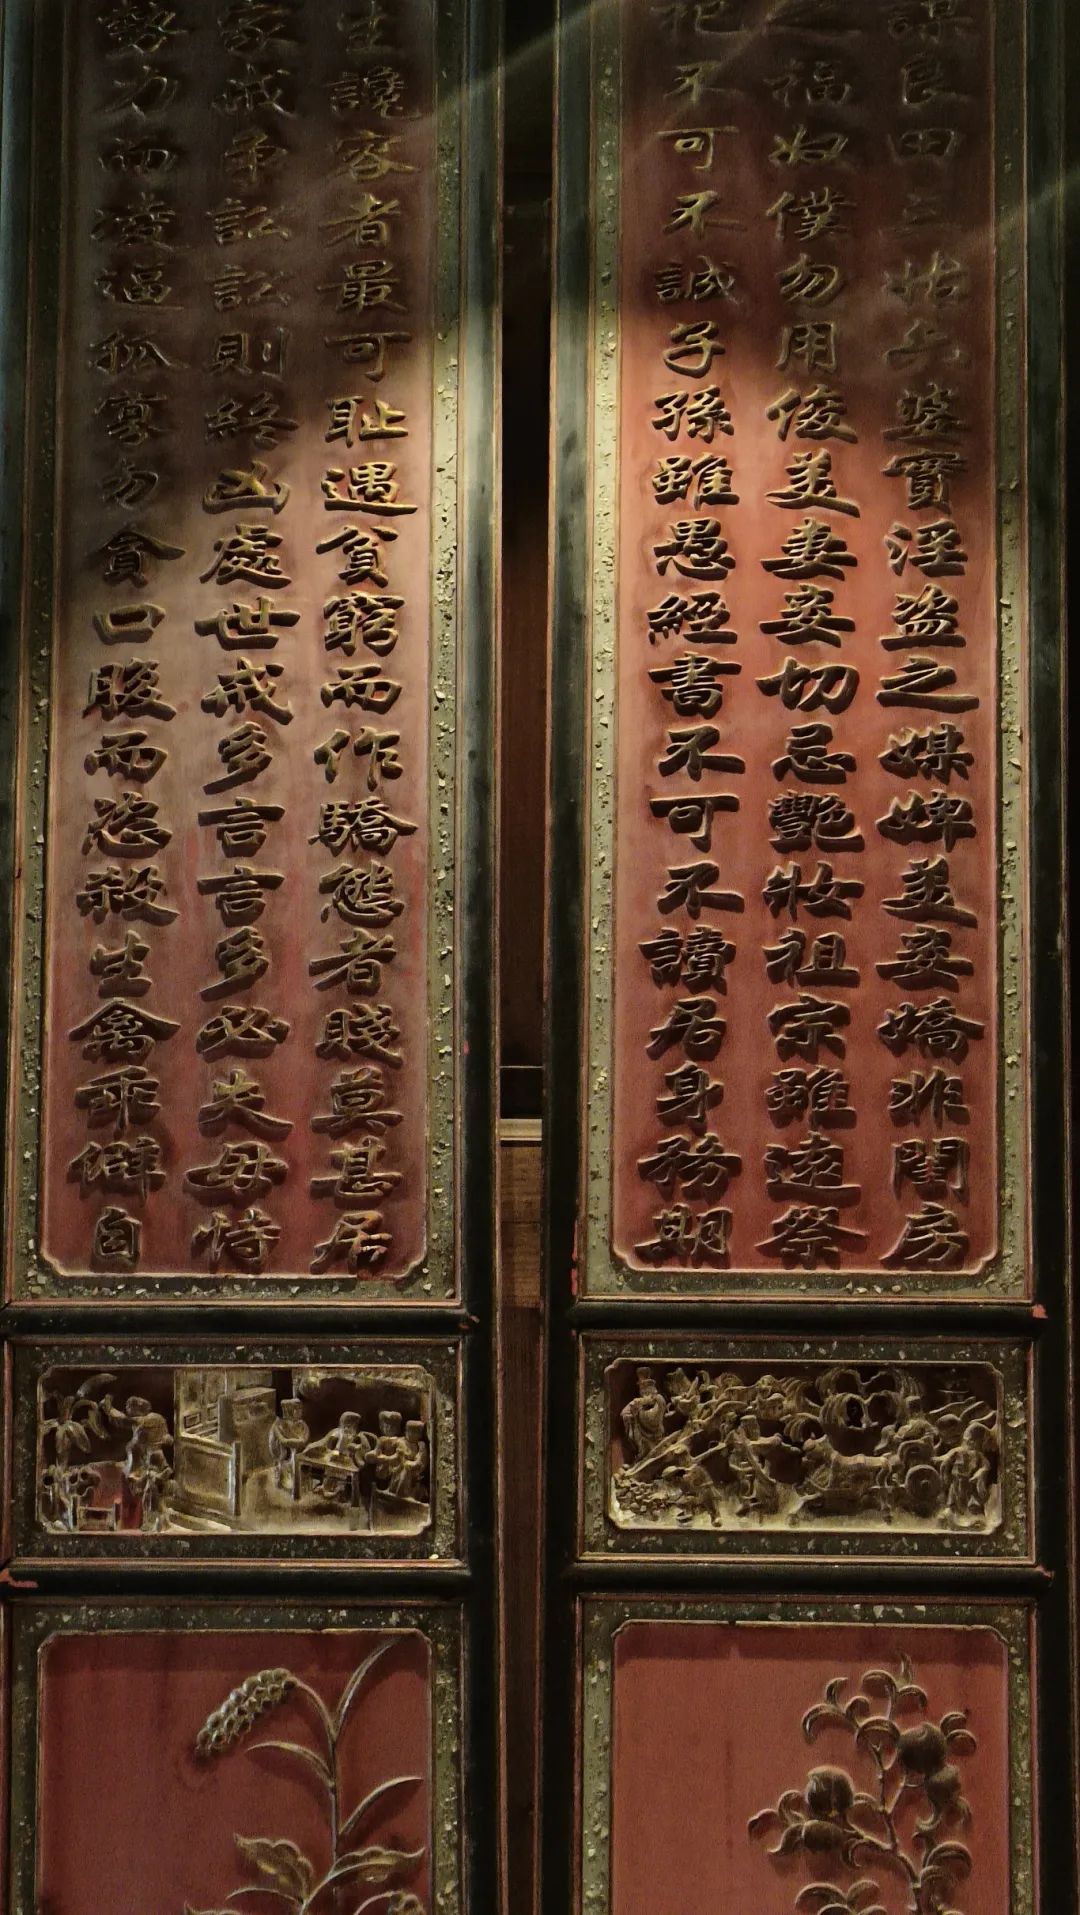 謀良田三姑六婆實淫盜之媒婢美妾嬌非閨房
之福奴僕勿用俊美妻妾切忌豔妝祖宗雖遠祭
祀不可不誠子孫雖愚經書不可不讀居身務期
生讒容者最可恥遇貧窮而作驕態者賤莫甚居
家戒爭訟訟則終凶處世戒多言言多必失毋恃
勢力而凌逼孤寡勿貪口腹而恣殺生禽乖僻自